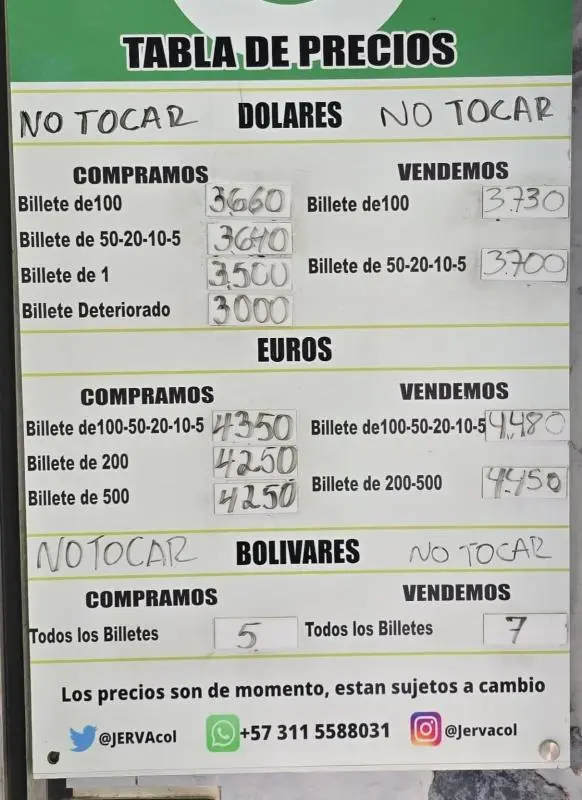 TABLA DE PRECIOS
NO TOCAR DOLARES NO TOCAR
COMPRAMOS VENDEMOS
Billete de100 3660 Billete de100 3.730
Billete de 50-20-10-5 3640 Billete de 50-20-10-5 3.700
Billete de 1 3.500
Billete Deteriorado 3000
EUROS
COMPRAMOS VENDEMOS
Billete de100-50-20-10-5 4350 Billete de100-50-20-10-5 4.480
Billete de 200 4250
Billete de 500 4250 Billete de 200-500 4.450
NO TOCAR BOLIVARES NO TOCAR
COMPRAMOS VENDEMOS
Todos los Billetes 5 Todos los Billetes 7
Los precios son de momento, estan sujetos a cambio
@JERVAcol +57 311 5588031 @Jervacol